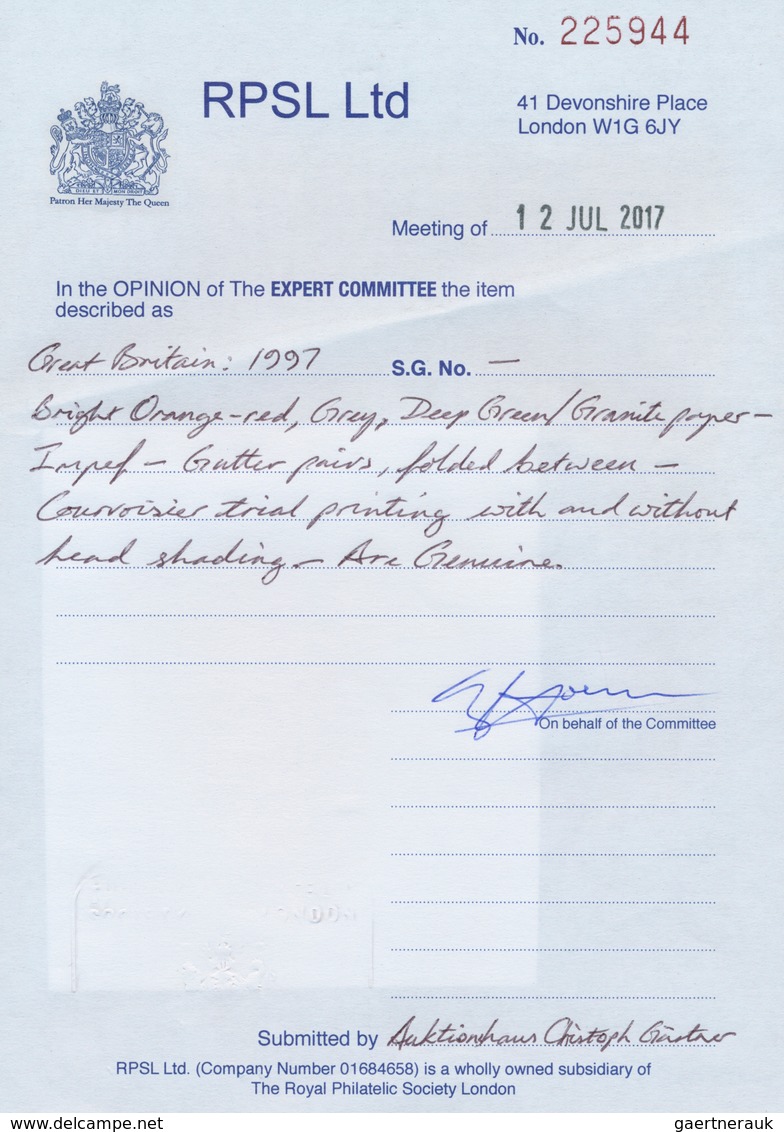 No. 225944
RPSL Ltd
41 Devonshire Place
London W1G 6JY
DIEU ET MON DROIT
Patron Her Majesty The Queen
Meeting of 12 JUL 2017
In the OPINION of The EXPERT COMMITTEE the item
described as
Great Britain: 1997 S.G. No. —
Bright Orange-red, Grey, Deep Green/Granite paper -
Impef - Gutter pairs, folded between -
Courvoisier trial printing with and without
head shading - Are Genuine.
On behalf of the Committee
Submitted by Auktionshaus Christoph Gärtner
RPSL Ltd. (Company Number 01684658) is a wholly owned subsidiary of
The Royal Philatelic Society London
www.delcampe.net gaertnerauk